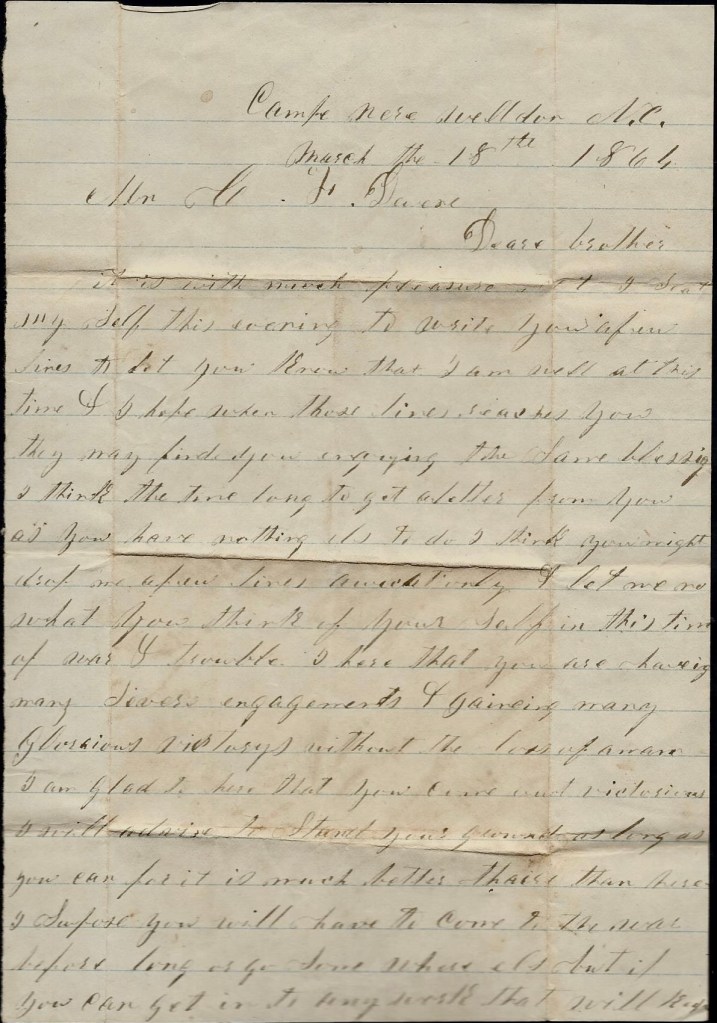 Campe nere Welldon N.C.
March the 18th 1864
Mr F.
Deare brother
it is with much pleasure that I Seat
my Self this evening to write you afew
lines to let you know that I am well at this
time & I hope when those lines reaches you
they may find you enjoying the Same blessing
I think the time long to get aletter from you
as you have nothing els to do I think you might
drop me afew lines & let me no
what you think of your Self in this time
of war & trouble I here that you are haveing
many Severe engagements & gaineing many
Glorious victorys without the loss of aman
I am glad to here that you come out victorious
I will advise to Stand your ground as long as
you can for it is much better thare than here
I Supose you will have to come to the war
before long or go Some where els but if
you can get in to any work that will keep